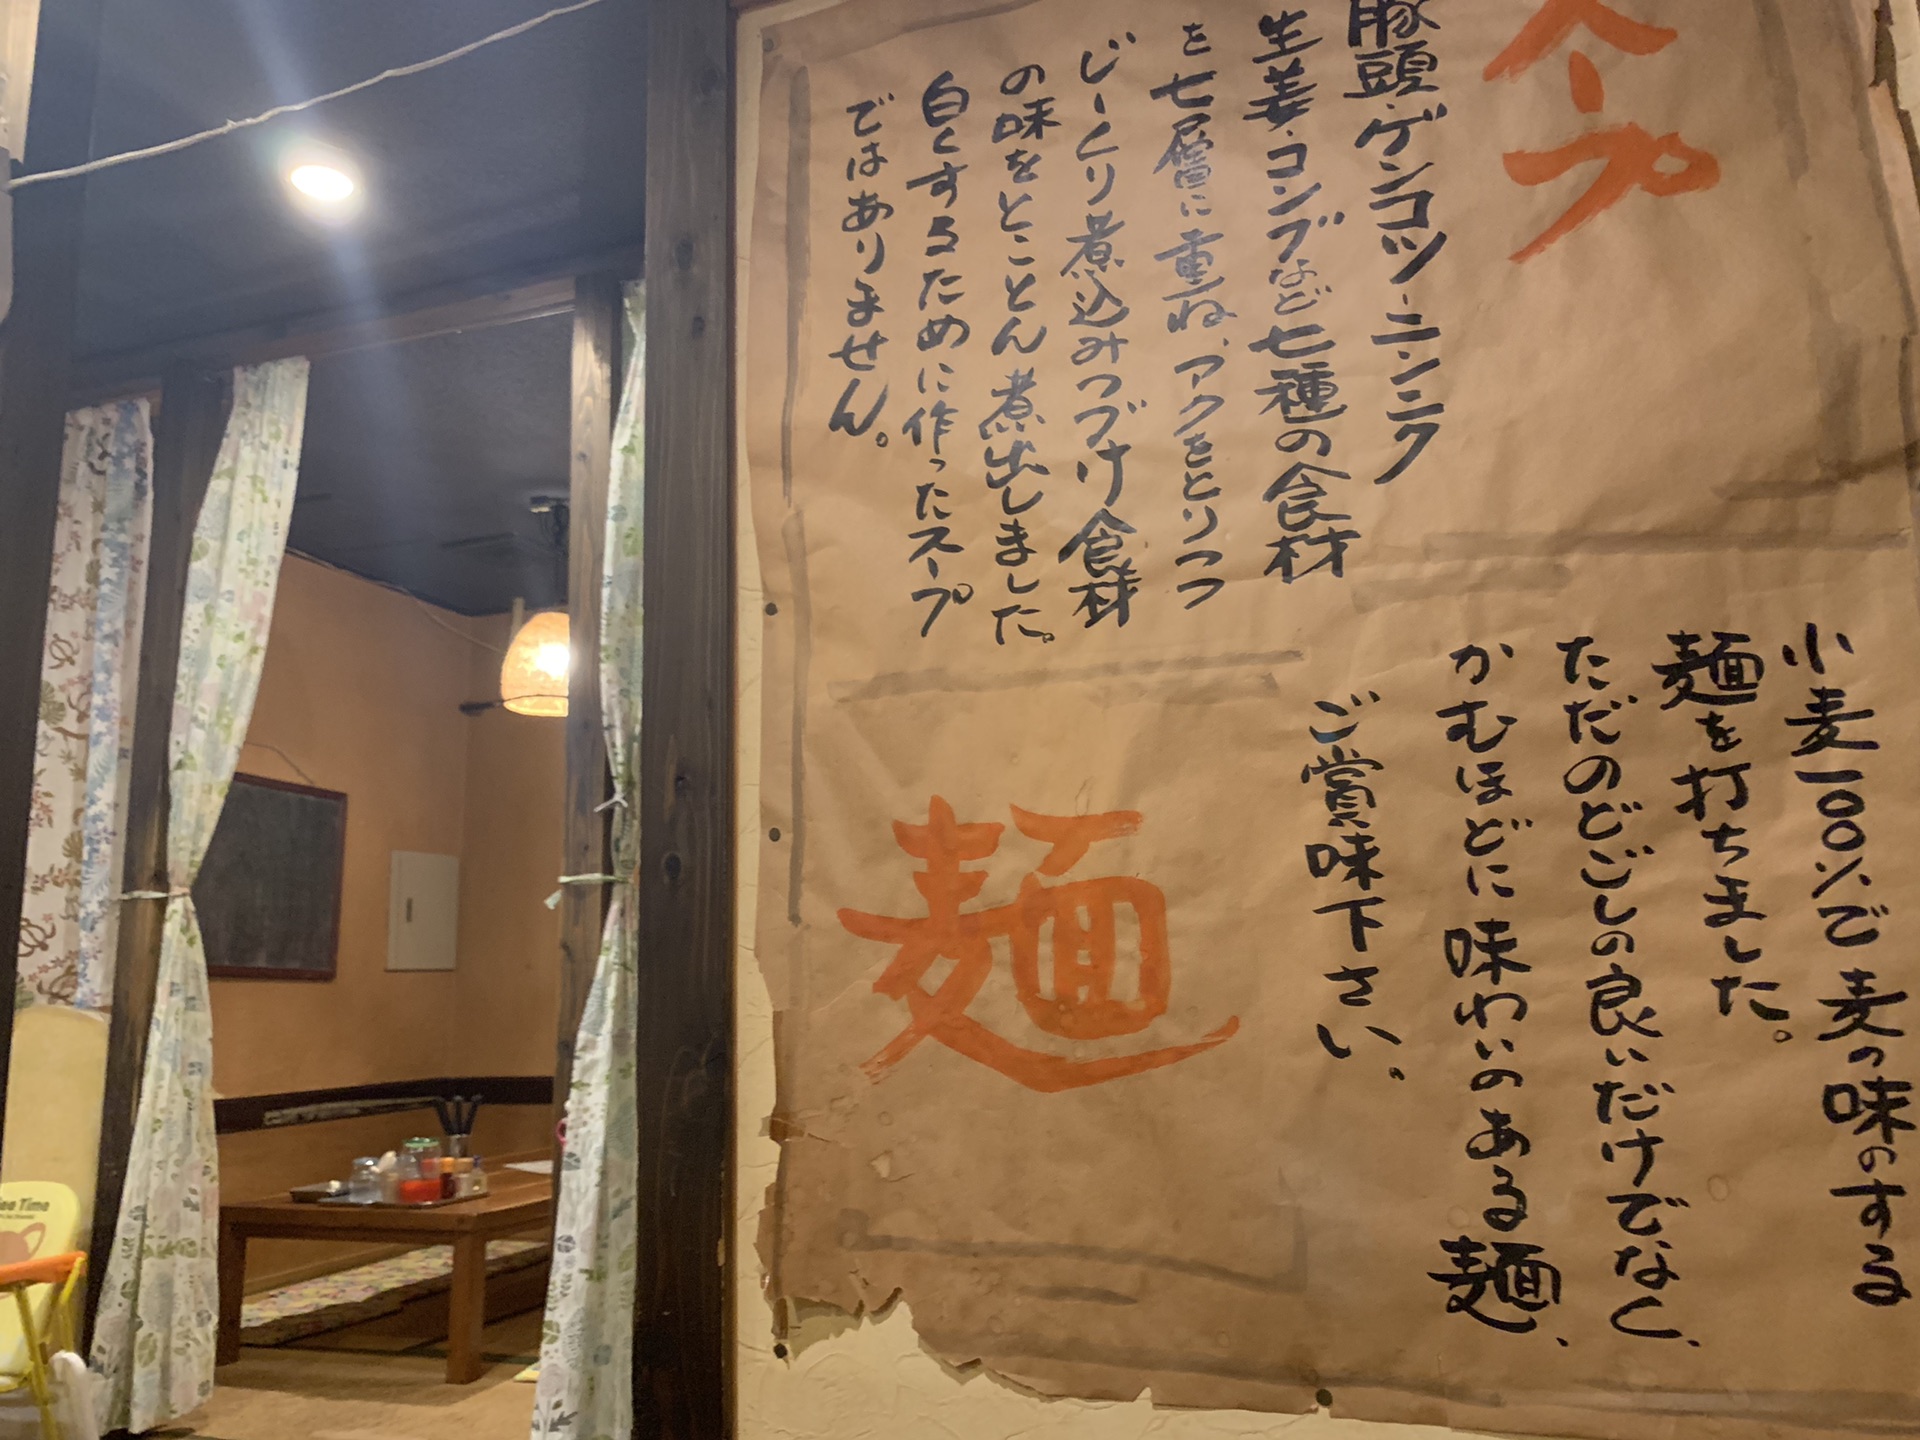 スープ
豚頭・ゲンコツ・ニンニク
生姜・コンブなど七種の食材
を七層に重ね、アクをとりつつ
じーくり煮込みつづけ食材
の味をとことん煮出しました。
白くするために作ったスープ
ではありません。
小麦一〇〇%で麦の味のする
麺を打ちました。
ただのどごしの良いだけでなく、
かむほどに味わいのある麺、
ご賞味下さい。
麺
Time